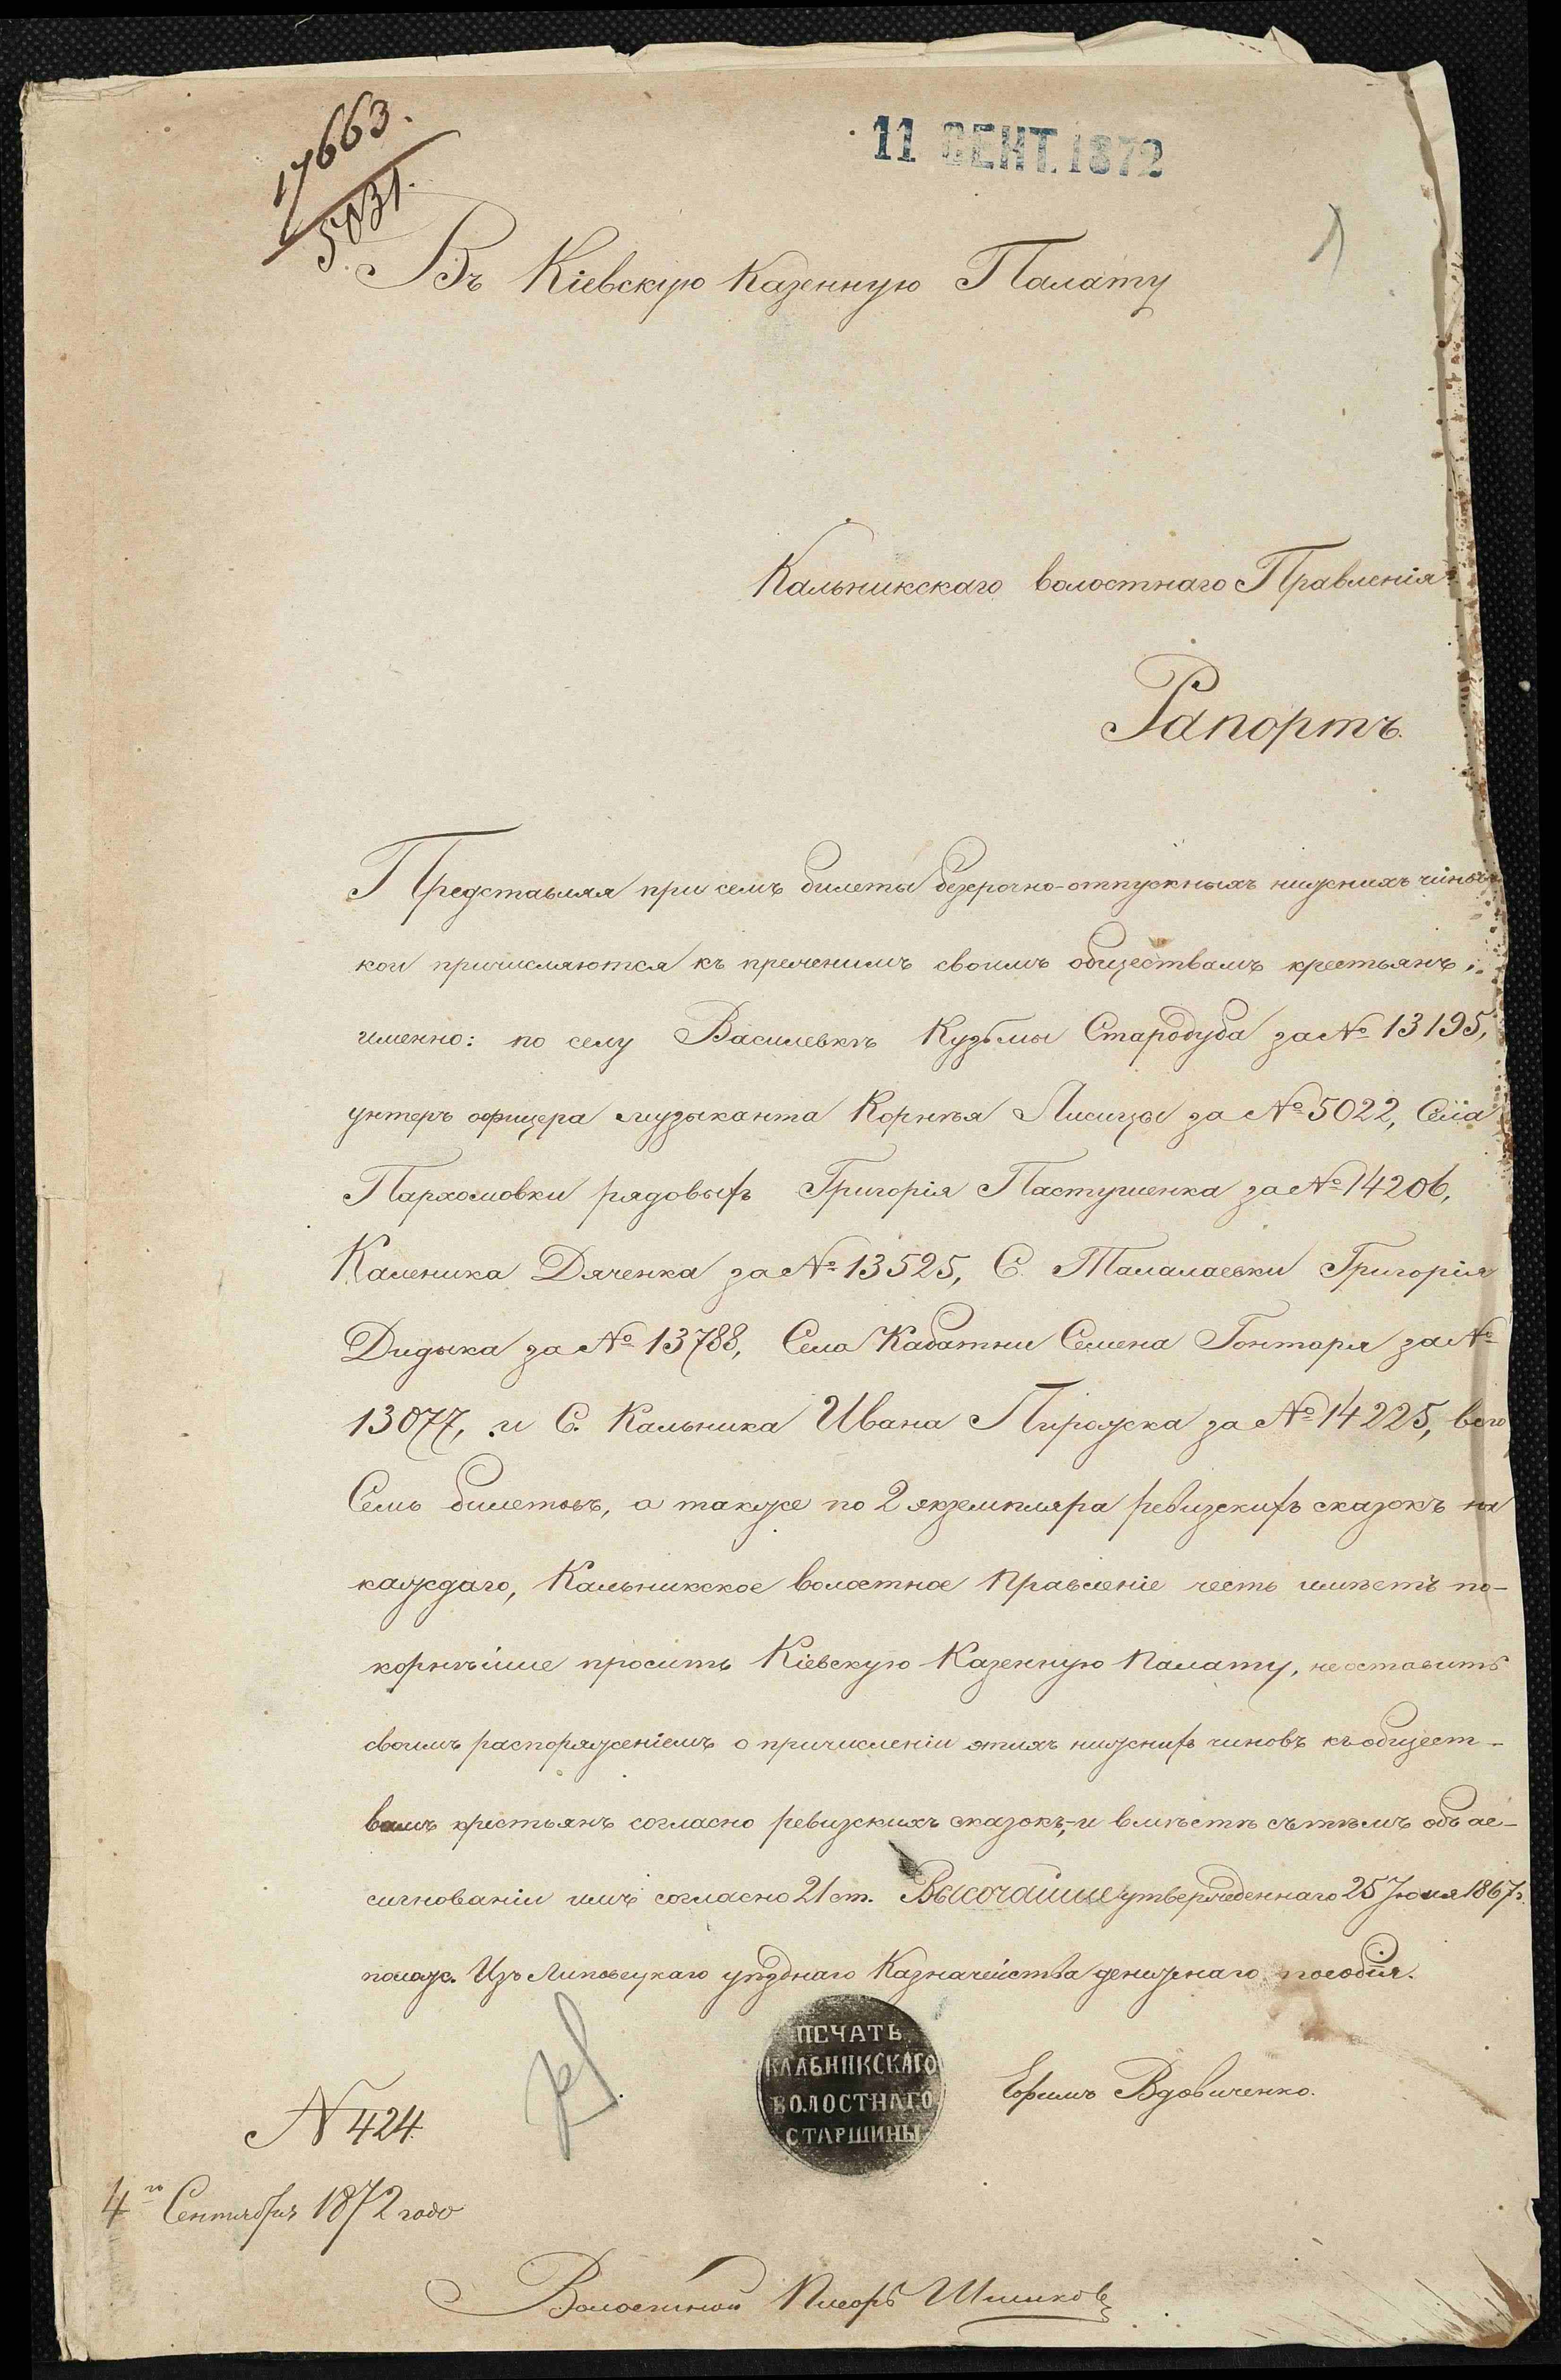 17663.
5031.
11 СЕНТ. 1872
1)
Въ Кіевскую Казенную Палату
Кальникскаго волостнаго Правленія
Рапортъ.
Представляя при семъ билеты безсрочно-отпускныхъ нижнихъ чиновъ
кои причисляются къ прежнимъ своимъ обществамъ крестьянъ,
именно: по селу Василевкѣ Кузьмы Стародуба за № 13195,
унтеръ офицера музыканта Корнѣя Лисицы за № 5022, Села
Пархомовки рядовыхъ Григорія Пастушенка за № 14206,
Каленика Дяченка за № 13525, С. Талалаевки Григорія
Дидыка за № 13788, Села Кабатни Семена Гонтаря за №
13077, и С. Кальника Ивана Пирожка за № 14225, всего
Семь билетовъ, а также по 2 экземпляра ревизскихъ сказокъ на
каждаго, Кальникское волостное Правленіе честь имѣетъ по-
корнѣйше просить Кіевскую Казенную Палату, не оставить
своимъ распоряженіемъ о причисленіи этихъ нижнихъ чиновъ къ общест-
вамъ крестьянъ согласно ревизскихъ сказокъ, и вмѣстѣ съ тѣмъ объ ас-
сигнованіи имъ согласно 21 ст. Высочайше утвержденнаго 25 Іюня 1867 г.
полож. Изъ Липовецкаго уѣзднаго Казначейства денежнаго пособія.
ПЕЧАТЬ
КАЛЬНИКСКАГО
ВОЛОСТНАГО
СТАРШИНЫ
Ефимъ Вдовиченко.
N 424
4го Сентября 1872 года
Волостной Писарь